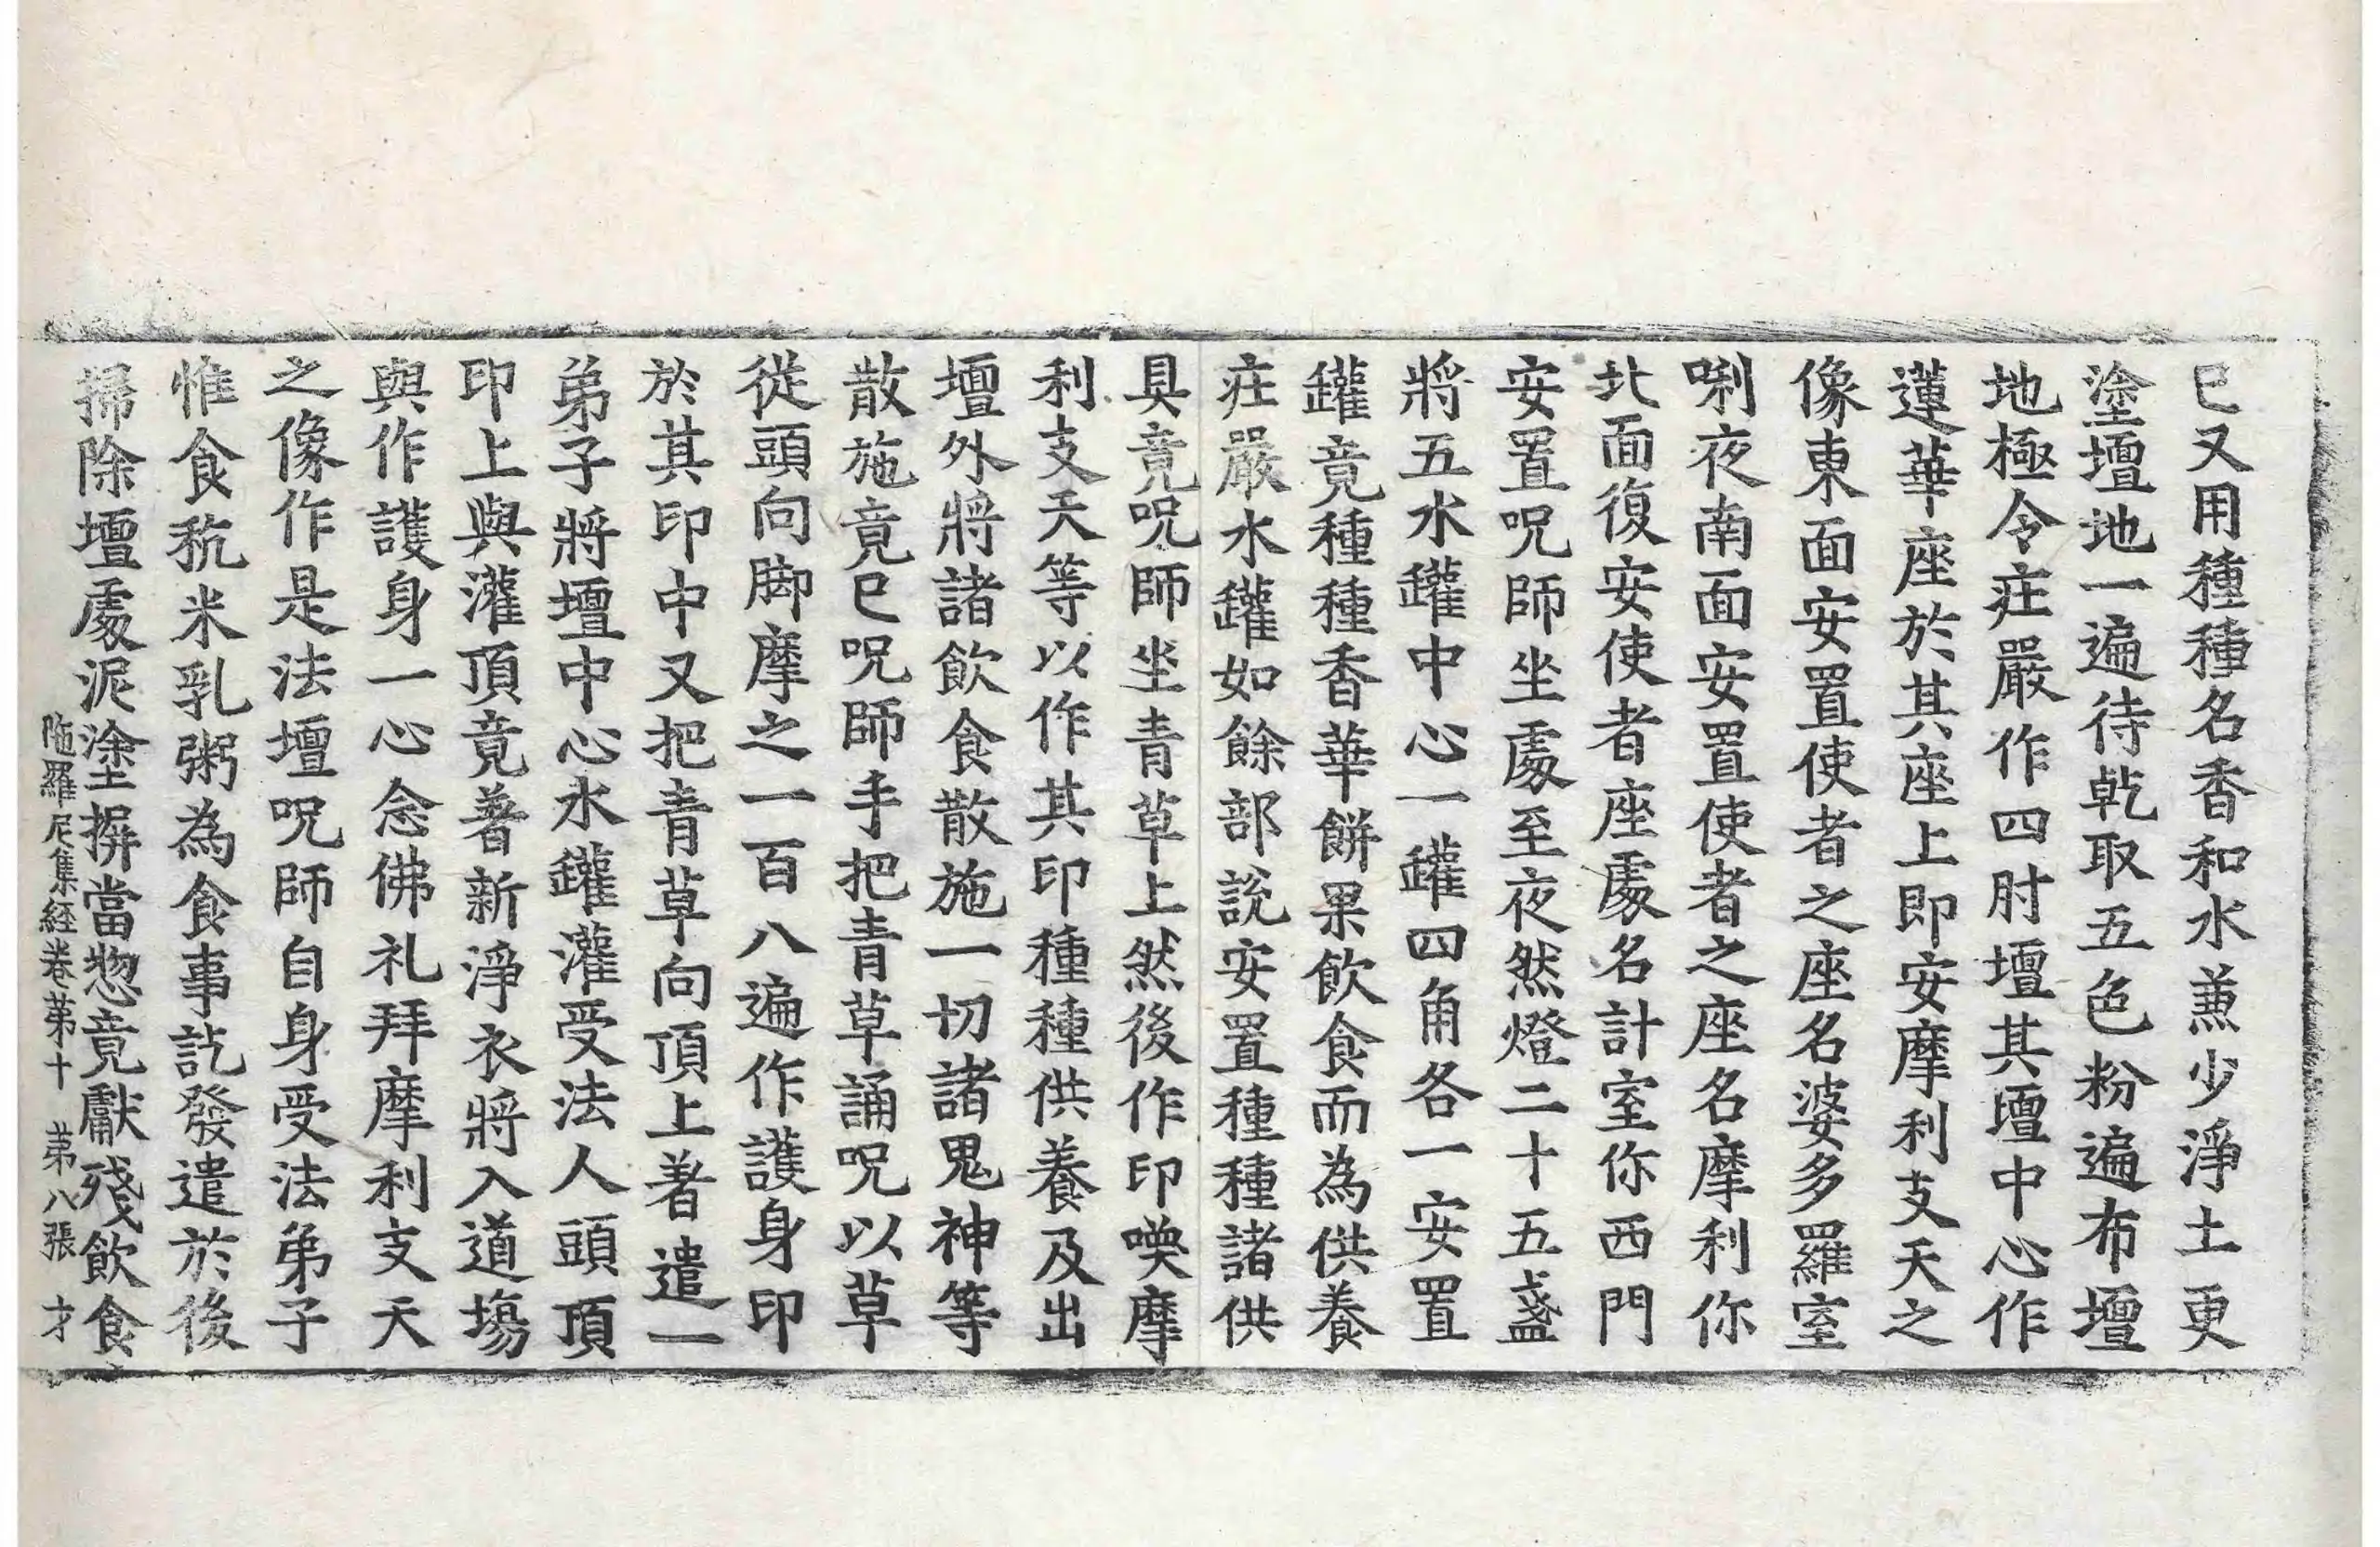 已又用種種名香和水兼少淨土更
塗壇地一遍待乾取五色粉遍布壇
地極令庄嚴作四肘壇其壇中心作
蓮華座於其座上即安摩利支天之
像東面安置使者之座名婆多羅室
唎夜南面安置使者之座名摩利你
北面復安使者座處名計室你西門
安置呪師坐處至夜然燈二十五盞
將五水罐中心一罐四角各一安置
罐竟種種香華餅果飲食而為供養
庄嚴水罐如餘部說安置種種諸供
具竟呪師坐青草上然後作印喚摩
利支天等以作其印種種供養及出
壇外將諸飲食散施一切諸鬼神等
散施竟已呪師手把青草誦呪以草
從頭向脚摩之一百八遍作護身印
於其印中又把青草向頂上著遣一
弟子將壇中心水罐灌受法人頭頂
印上與灌頂竟著新淨衣將入道場
與作護身一心念佛礼拜摩利支天
之像作是法壇呪師自身受法弟子
惟食秔米乳粥為食事訖發遣於後
掃除壇處泥塗摒當惣竟獻殘飲食
陁羅尼集經卷第十 第八張 才